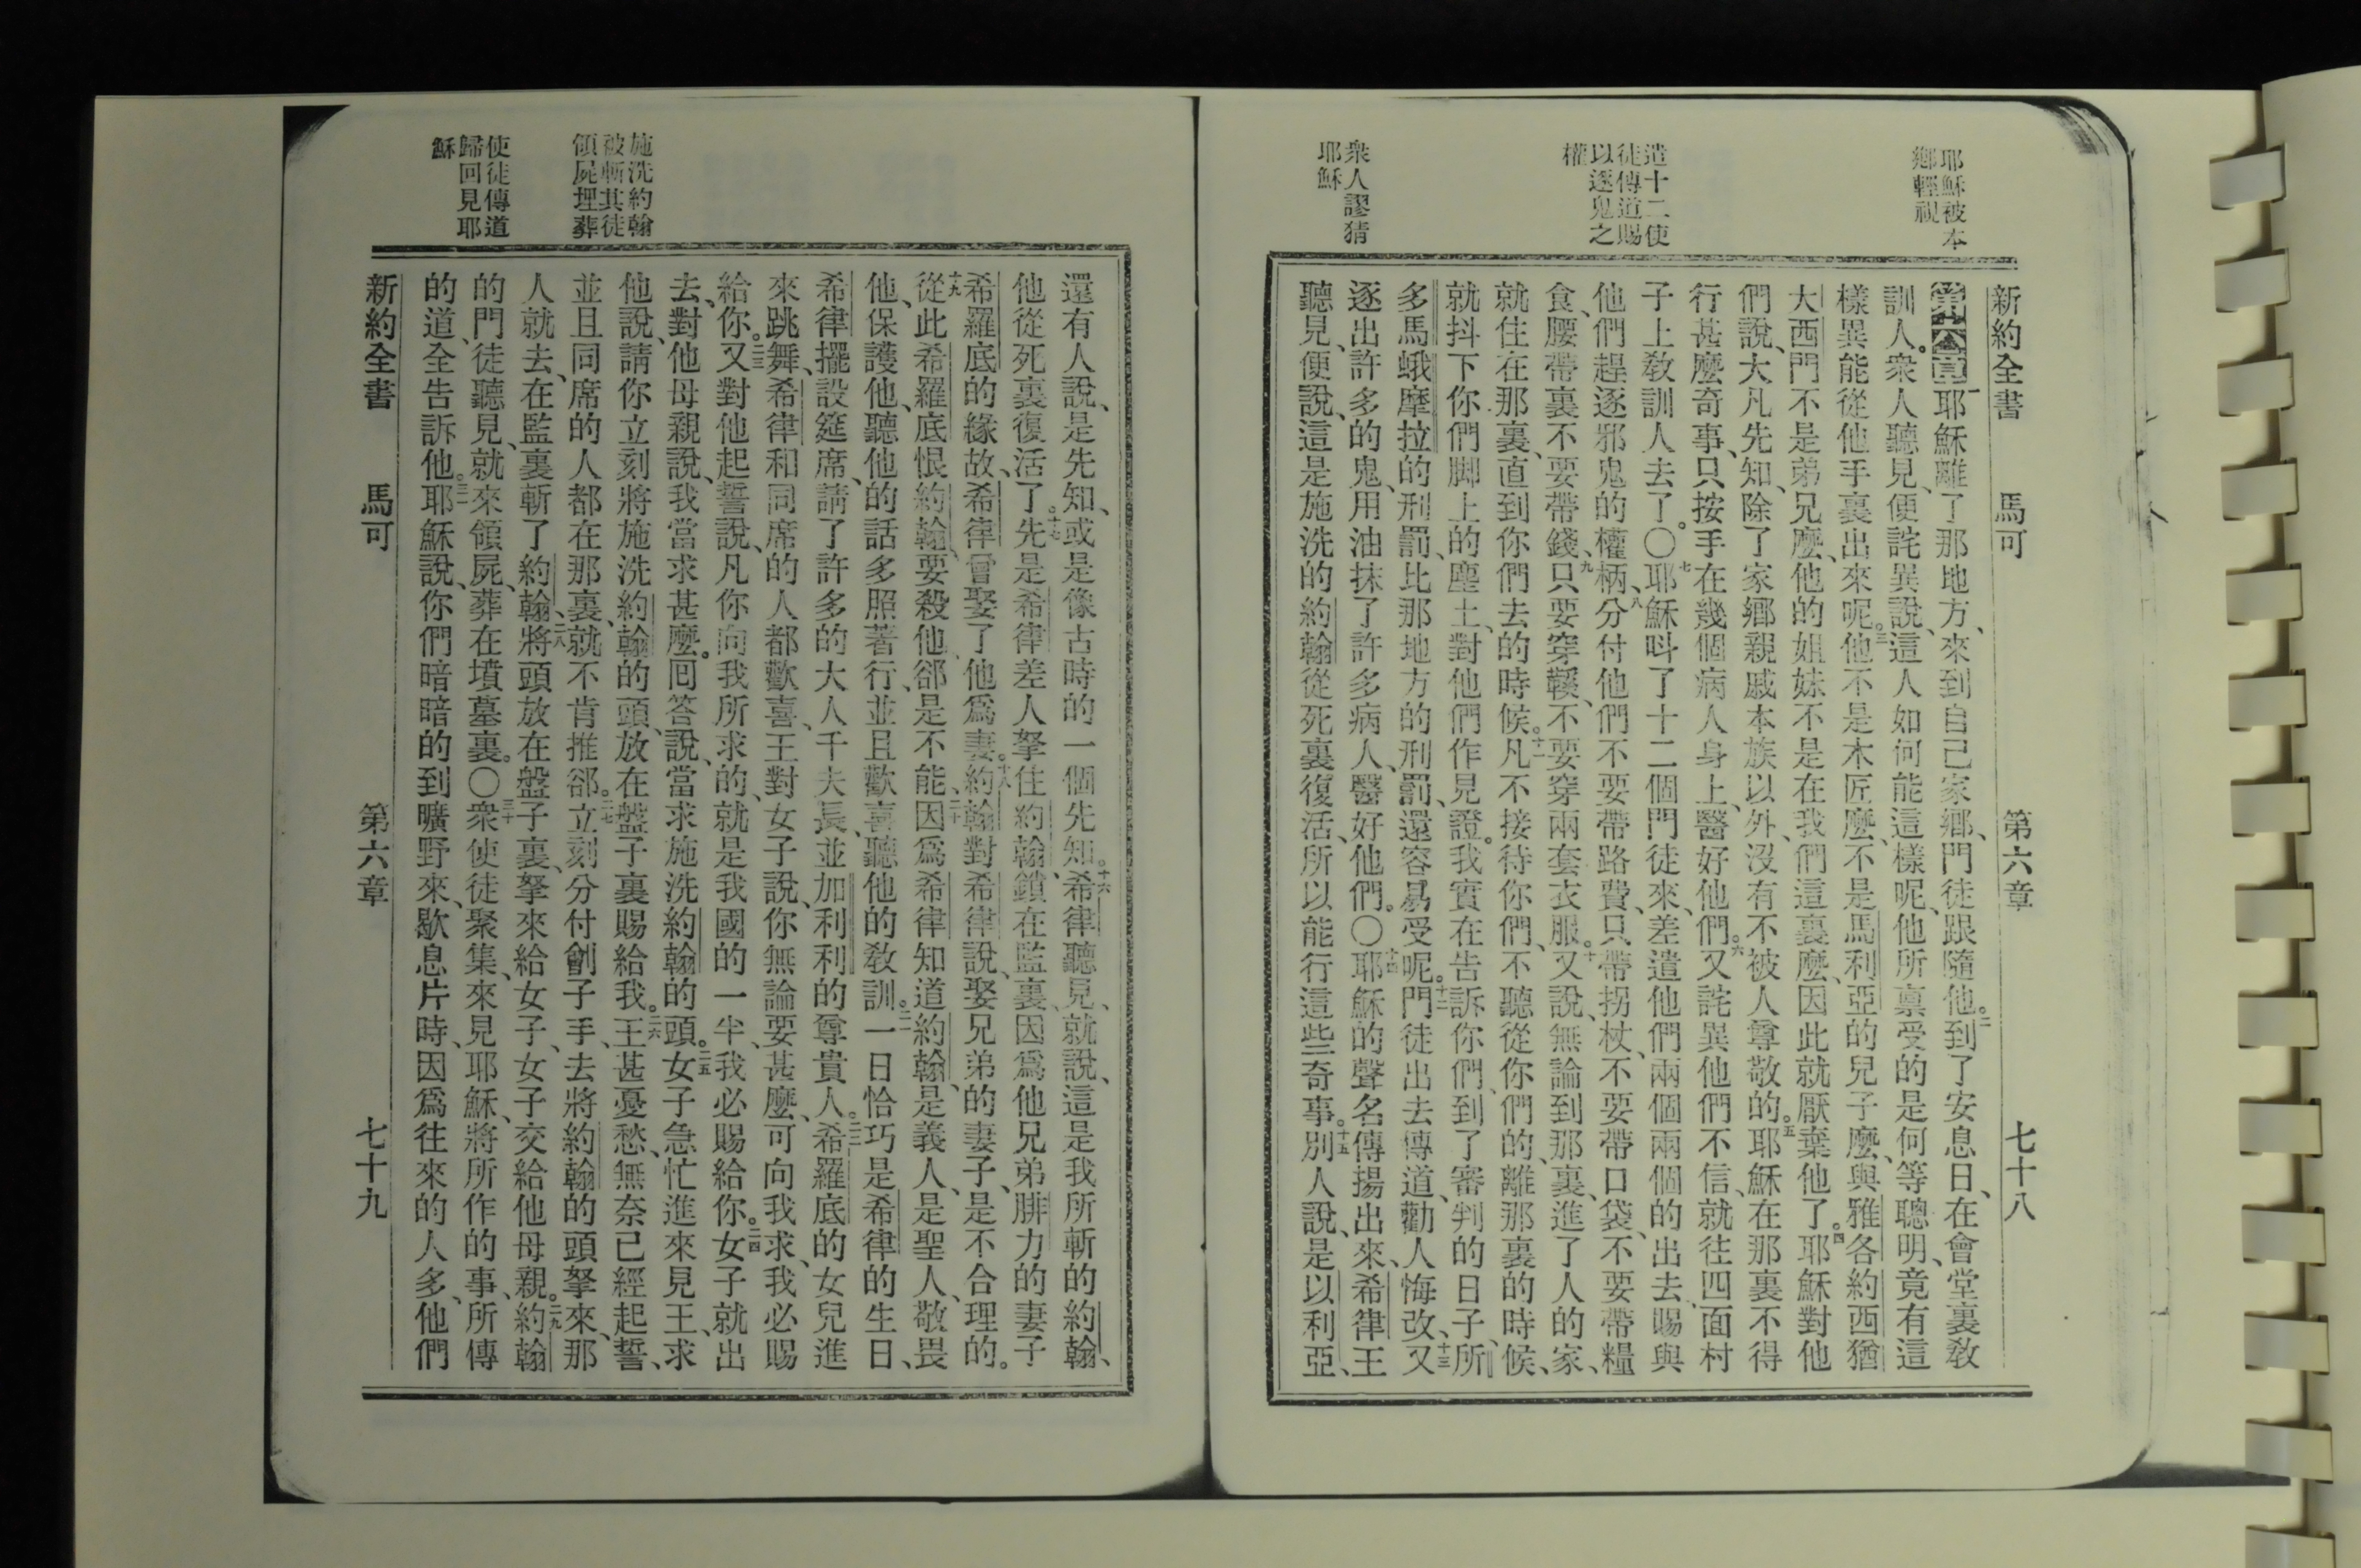 耶穌被本
鄉輕視
遣十二使
徒傳道賜
以逐鬼之
權
衆人謬猜
耶穌
新約全書 馬可 第六章 七十八
第六章一耶穌離了那地方、來到自己家鄉、門徒跟隨他。二到了安息日、在會堂裏教
訓人。衆人聽見、便詫異說、這人如何能這樣呢、他所稟受的是何等聰明、竟有這
樣異能從他手裏出來呢。三他不是木匠麼、不是馬利亞的兒子麼、與雅各約西猶
大西門不是弟兄麼、他的姐妹不是在我們這裏麼、因此就厭棄他了。四耶穌對他
們說、大凡先知、除了家鄉親戚本族以外、沒有不被人尊敬的。五耶穌在那裏不得
行甚麼奇事、只按手在幾個病人身上、醫好他們。六又詫異他們不信、就往四面村
子上教訓人去了。〇七耶穌呌了十二個門徒來、差遣他們兩個兩個的出去、賜與
他們趕逐邪鬼的權柄、八分付他們不要帶路費、只帶拐杖、不要帶口袋、不要帶糧
食、腰帶裏不要帶錢、九只要穿鞵、不要穿兩套衣服。十又說、無論到那裏、進了人的家、
就住在那裏、直到你們去的時候。十一凡不接待你們、不聽從你們的、離那裏的時候、
就抖下你們脚上的塵土、對他們作見證。我實在告訴你們、到了審判的日子、所
多馬蛾摩拉的刑罰、比那地方的刑罰、還容易受呢。十二門徒出去傳道、勸人悔改、十三又
逐出許多的鬼、用油抹了許多病人、醫好他們。〇十四耶穌的聲名傳揚出來、希律王
聽見、便說、這是施洗的約翰從死裏復活、所以能行這些奇事。十五別人說、是以利亞、
施洗約翰
被斬其徒
領屍埋葬
使徒傳道
歸回見耶
穌
還有人說、是先知、或是像古時的一個先知。十六希律聽見、就說、這是我所斬的約翰、
他從死裏復活了。十七先是希律差人拏住約翰、鎖在監裏、因爲他兄弟腓力的妻子
希羅底的緣故、希律曾娶了他爲妻。十八約翰對希律說、娶兄弟的妻子、是不合理的。
十九從此希羅底恨約翰、要殺他、郤是不能、二十因爲希律知道約翰、是義人、是聖人、敬畏
他、保護他、聽他的話多照著行、並且歡喜聽他的教訓。二一一日恰巧是希律的生日、
希律擺設筵席、請了許多的大人千夫長、並加利利的尊貴人。二二希羅底的女兒進
來跳舞、希律和同席的人都歡喜、王對女子說、你無論要甚麼、可向我求、我必賜
給你。二三又對他起誓說、凡你向我所求的、就是我國的一半、我必賜給你。二四女子就出
去、對他母親說、我當求甚麼。囘答說、當求施洗約翰的頭。二五女子急忙進來見王、求
他說、請你立刻將施洗約翰的頭、放在盤子裏賜給我。二六王甚憂愁、無奈己經起誓、
並且同席的人都在那裏、就不肯推郤。二七立刻分付劊子手、去將約翰的頭拏來、那
人就去、在監裏斬了約翰、二八將頭放在盤子裏、拏來給女子、女子交給他母親。二九約翰
的門徒聽見、就來領屍、葬在墳墓裏。〇三十衆使徒聚集、來見耶穌、將所作的事、所傳
的道、全告訴他。三一耶穌說、你們暗暗的到曠野來、歇息片時、因爲往來的人多、他們
新約全書 馬可 第六章 七十九